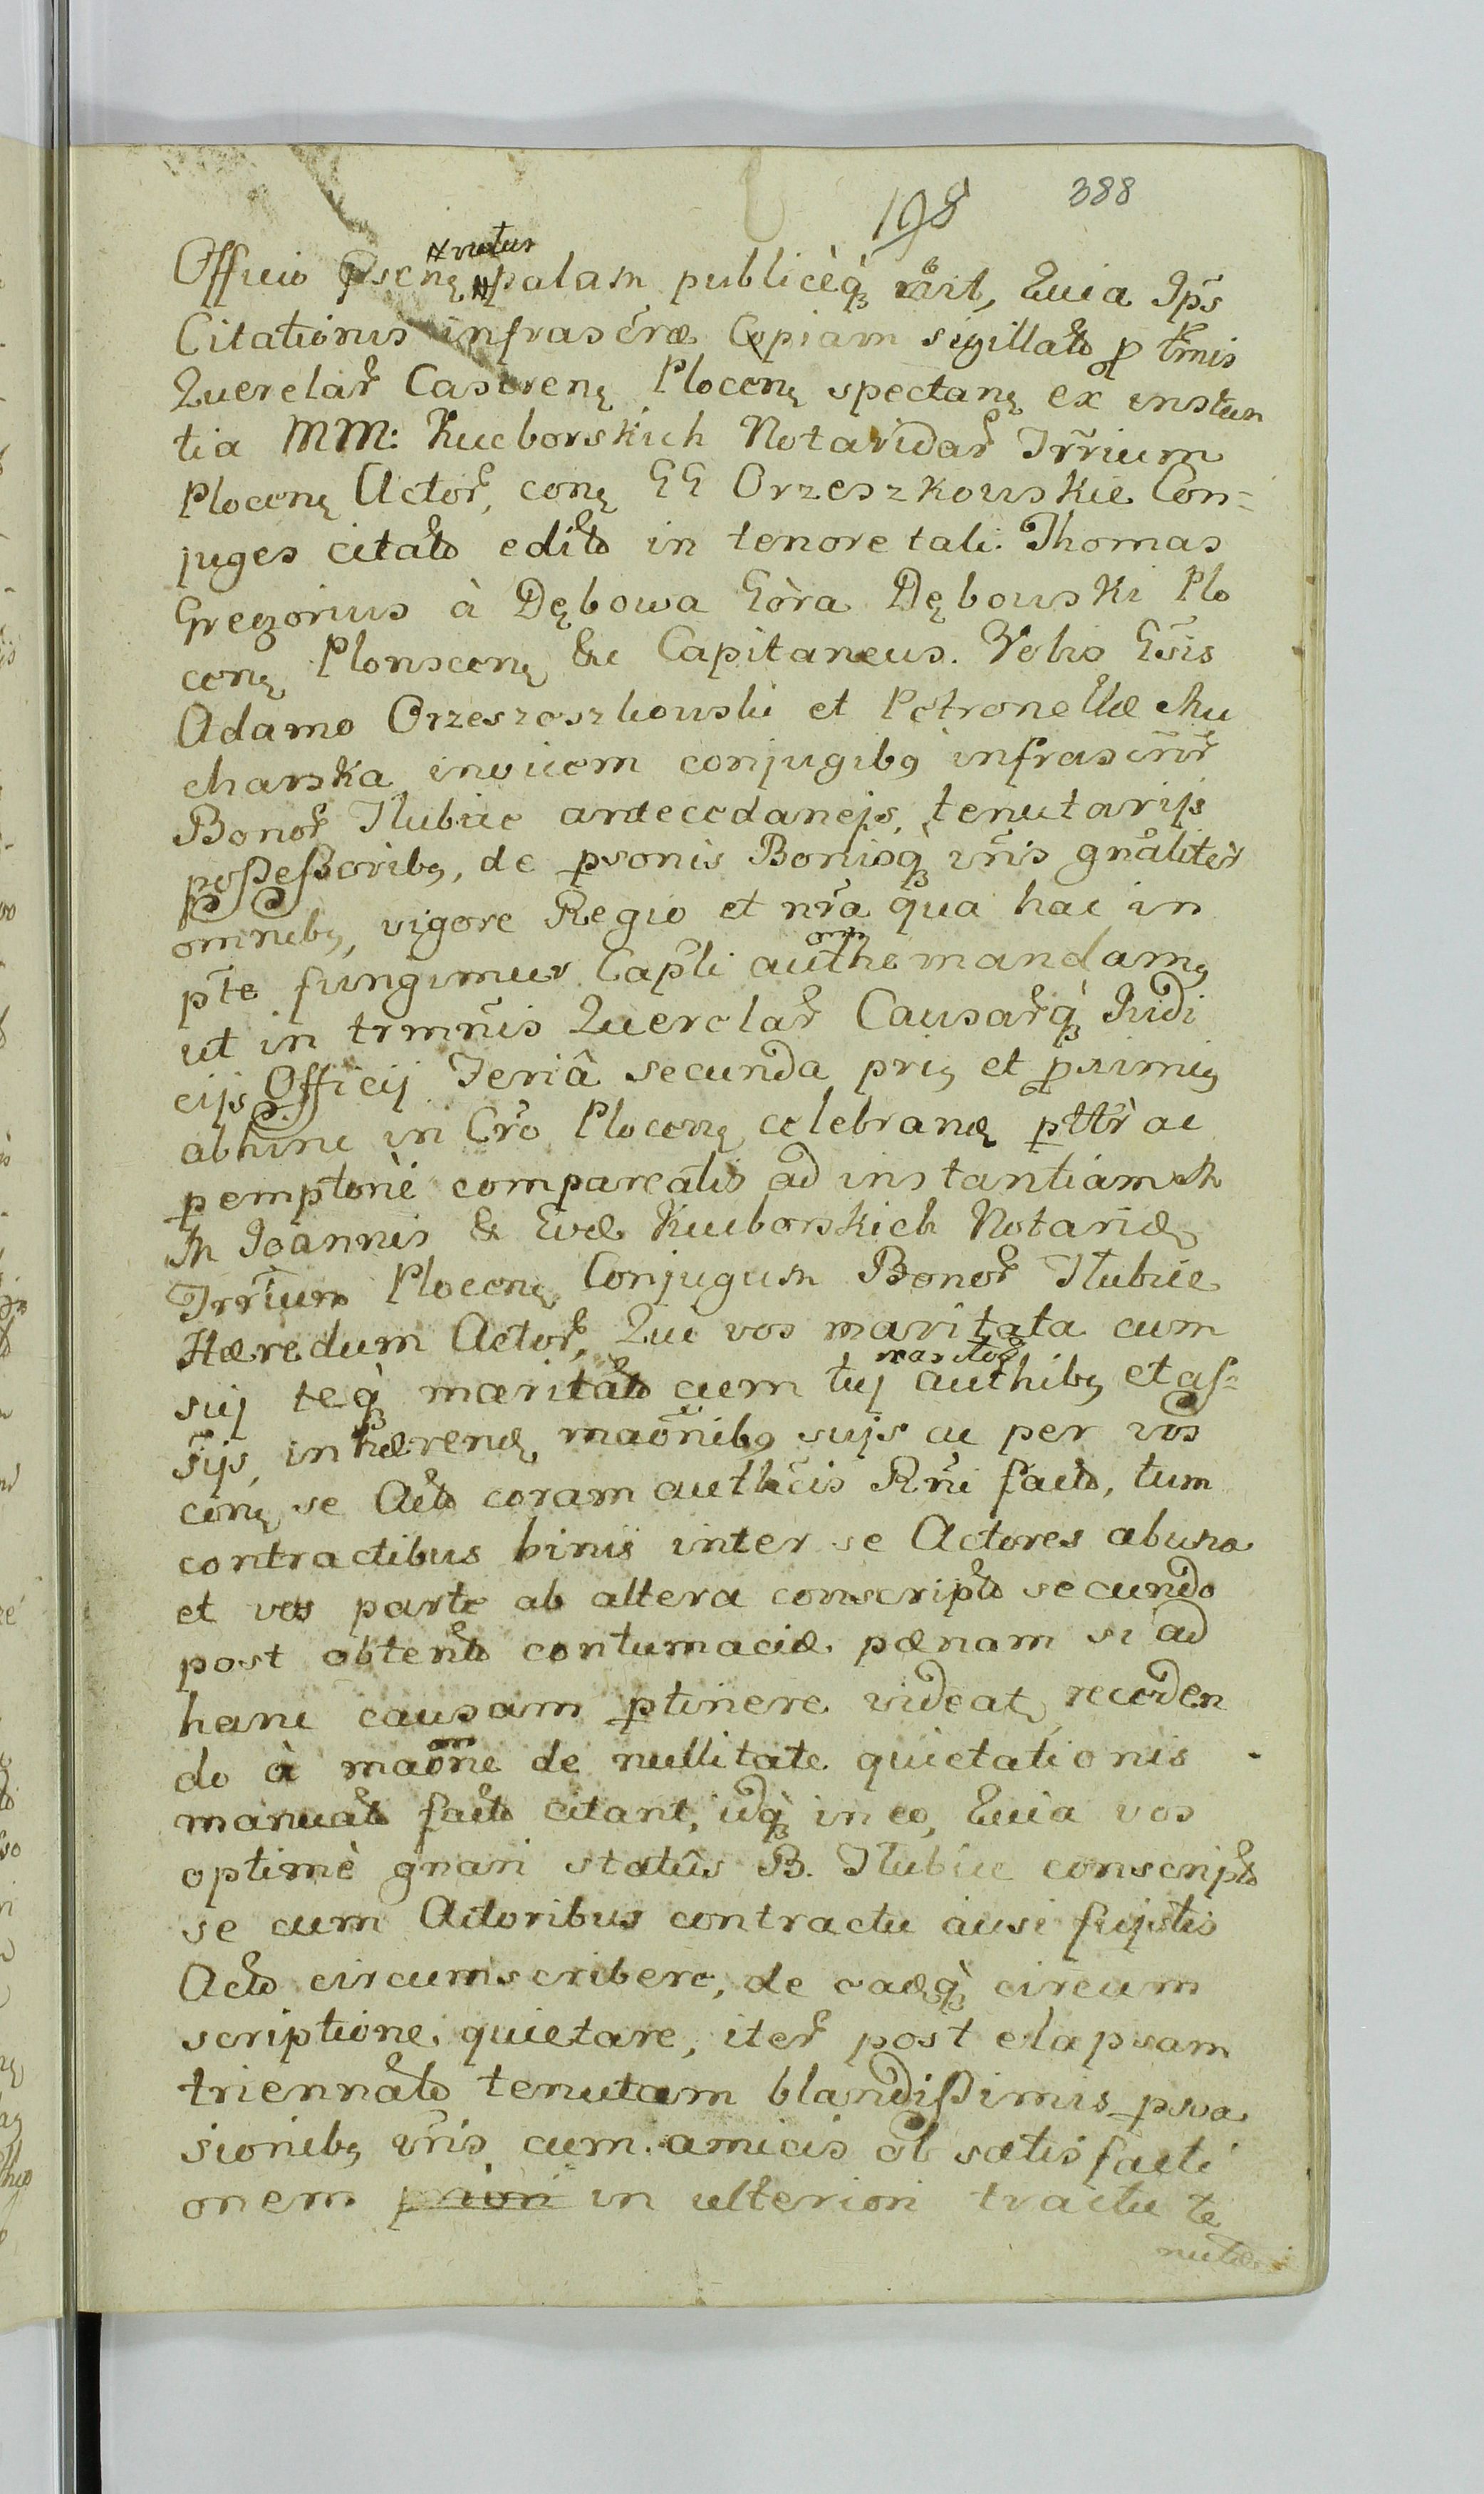 198 388
#natus
Officio pseñ, # palam publicèq̀; rčit, Quia Ips
Citationis infrascræ Copiam sigillatã p trmis
Querelar̃ Castreñ Ploceñ spectañ ex instan
tia MM: Kucborskich Notaridar̃ Trrium
Ploceñ Actor̃, coñ GG Orzeszkowskie Con=
juges citatã editã in tenore tali. Thomas
Gregorius à Dębowa Góra Dębowski Plo
ceñ Plonsceñ &c Capitaneus. Vobis Gsis
Adamo Orzeszeszkowski et Petronellæ Mu
charska invicem conjugibq infrascr̃
Bonor̃ Ilubiie antecedanejs, tenutarijs
poßeßoribq, de psonis Bonisq̀; vris gnaliter
omnibq, vigore Regio et nra qua hac in
pte fungimur Capli authe mandamq
ut in trmnis Querelar̃ Causarq̀; Judi
cijs Officij Feriâ secunda priq et primiq
abhinc in Cro Ploceñ celebrañ pttr ac
pemptoriè compareatis ad instantiam M
M Joannis & Evæ Kucborskich Notariæ
Trrium Ploceñ Conjugum Bonor̃ Ilubiie
Hæredum Actor̃, Qui vos maritata cum
maritor̃
sui teq̀; maritatã cum tuj authibq et as=
sijs, inhærendæ maonibq sujs ac per vos
coñ se Actã coram authcis Rni factã, tum
contractibus binis inter se Actores ab una
et vos parte ab altera conscriptã secundo
post obtentã contumaciæ pænam si ad
hanc causam ptinere videatq receden
do à maone de nullitate quietationis
manualã factã citant, idq̀; in eo, Quia vos
optimè gnari statûs B. Ilubiie conscriptã
se cum Actoribus contractu ausi fujstis
Actã circumscribere, de eadq̀; circum
scriptione quietare, iter̃ post elapsam
triennalã tenutam blandißimis psva
sionibq vris cum amicis ob satisfacti
onem priori in ulteriori tractu te
nutæ